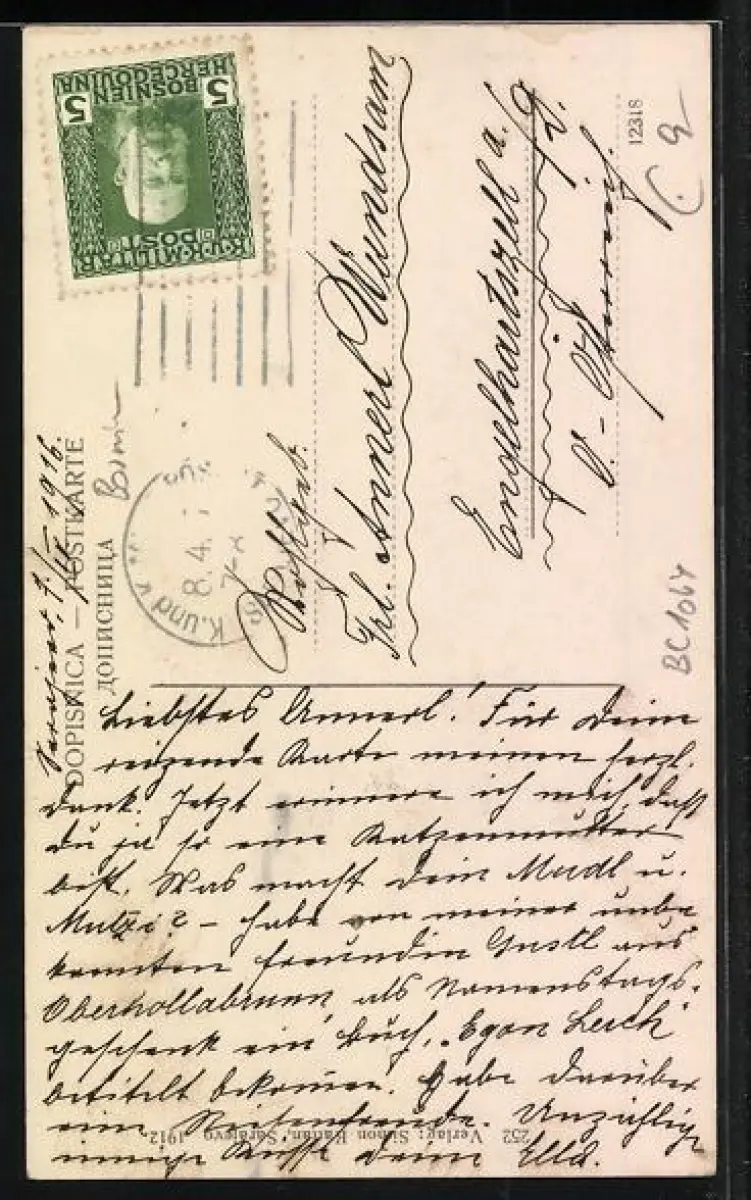 BOSNIEN
HERCEGOVINA
5 5
K.u.K. MILITÄR
POST
DOPISNICA — POSTKARTE
ДОПИСНИЦА
Sarajevo, 7./IV. 1916.
K. und K.
8.4.
Frl. Annerl Wundsam
Engelhartszell a/D.
O.-
12318
BC 1064
Liebstes Annerl! Für Deine
reizende Karte meinen herzl.
Dank. Jetzt erinnere ich mich, daß
du ja so eine Katzenmutter
bist. Was macht dein Mudl u.
Mutzi? – Habe von meiner unbe-
kannten Freundin Gustl aus
Oberhollabrunn, als Namenstags-
geschenk ein Buch, „Egon Lerch"
betitelt bekommen. Habe darüber
eine Riesenfreude. Unzählige
innige Küsse deine Ella.
252 Verlag: Simon Kattan, Sarajevo 1912.